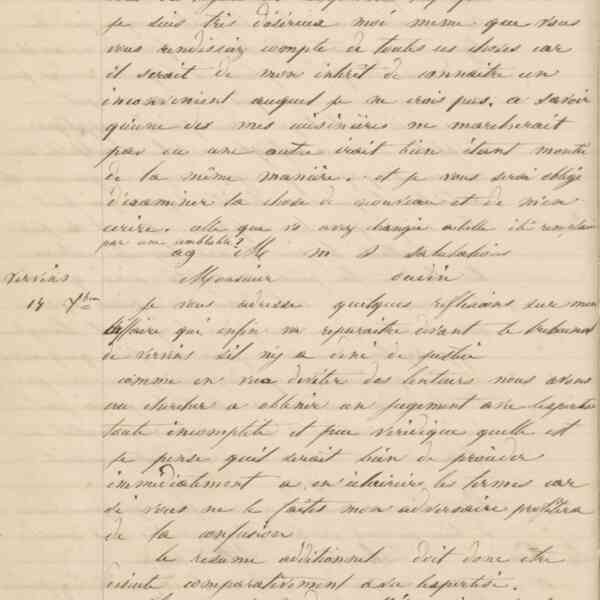 je suis très désireux moi meme que vous
vous rendissiez compte de toutes ces choses car
il serait de mon intérêt de connaitre un
inconvenient auquel je ne crois pas, a savoir
qu'une de mes cuisinières ne marcherait
pas ou une autre irait bien étant montée
de la même manière. et je vous serai obligé
d'examiner la chose de nouveau et de m'en
ecrire. celle que vs avez changée a telle été remplacée
par une semblable ?
ag M m s salutations
Vervins
14 7bre
Monsieur oudin
je vous adresse quelques reflexions sur mon
affaire qui enfin va reparaitre devant le tribunal
de vervins s'il n'y a deni de justice
comme en vue d'eviter des lenteurs nous avons
cru chercher a obtenir un jugement avec l'expertise
toute incomplète et peu veridique qu'elle est
je pense qu'il serait bien de proceder
immédiatement a en éclaircir les termes car
si vous ne le faites mon adversaire profitera
de la confusion
le resume additionnel doit donc etre
discuté comparativement avec l'expertise.